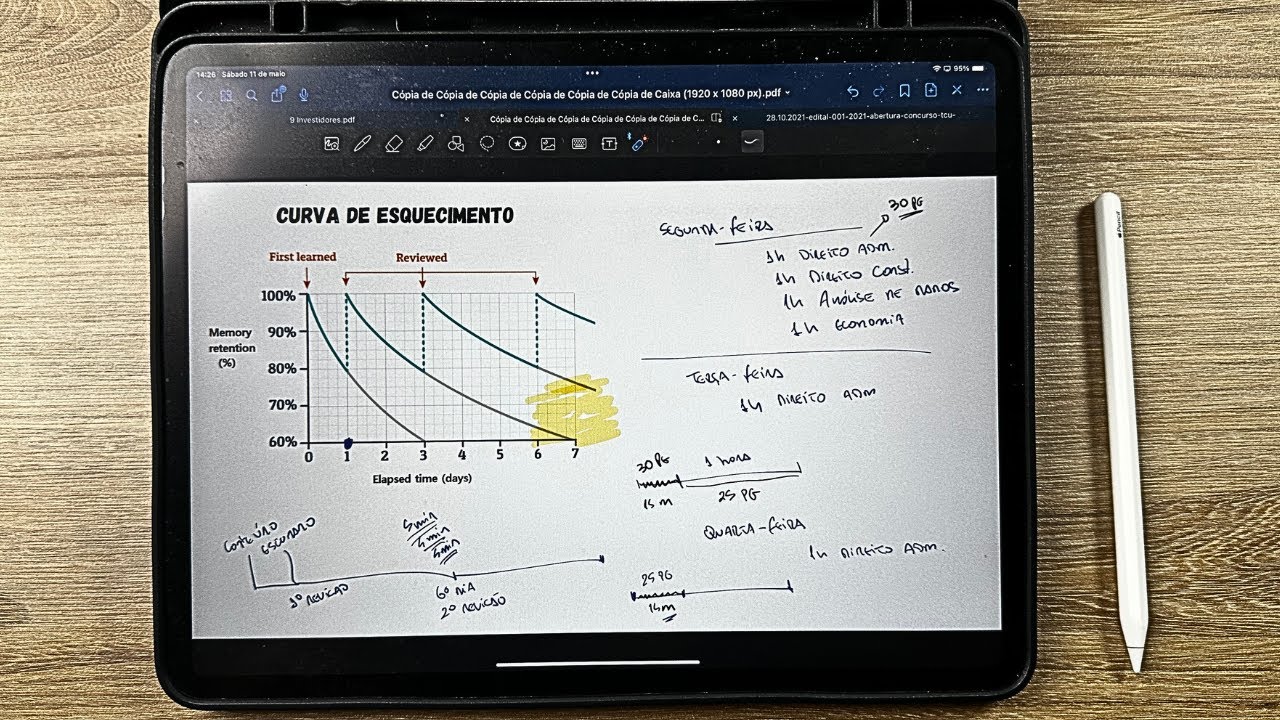 14:26 Sábado 11 de maio
95%
Cópia de Cópia de Cópia de Cópia de Cópia de Cópia de Caixa (1920 x 1080 px).pdf
9 Investidores.pdf
Cópia de Cópia de Cópia de Cópia de Cópia de Cópia de C...
28.10.2021-edital-001-2021-abertura-concurso-tcu-
CURVA DE ESQUECIMENTO
First learned
Reviewed
100%
90%
80%
70%
60%
Memory
retention
(%)
0 1 2 3 4 5 6 7
Elapsed time (days)
5min
4min
3min
1º REVISÃO
6º DIA
2º REVISÃO
SEGUNDA-FEIRA
30 PG
1h DIREITO ADM.
1h DIREITO CONST.
1h ANÁLISE DE DADOS
1h ECONOMIA
TERÇA-FEIRA
1h DIREITO ADM
30 PG
1 HORA
15 m
25 PG
QUARTA-FEIRA
1h DIREITO ADM.
25 PG
15m
Pencil